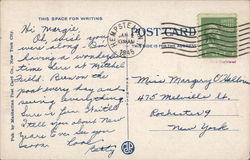 THIS SPACE FOR WRITING
POST CARD
THIS SIDE IS FOR ADDRESS
HEMPSTEAD
JAN
1945
Hi Margie,
Oh, wish you
were along. Am
having a wonderful
time here at Mitchel
Field. Been on the
post every day and
seeing everything.
Sure is fun. Will
tell you about New
Years Eve. See you
soon. Love
Betty
Miss Margery O'
475 Melville St.
Rochester 9
New York
Pub. by Manhattan Post Card Co., New York City